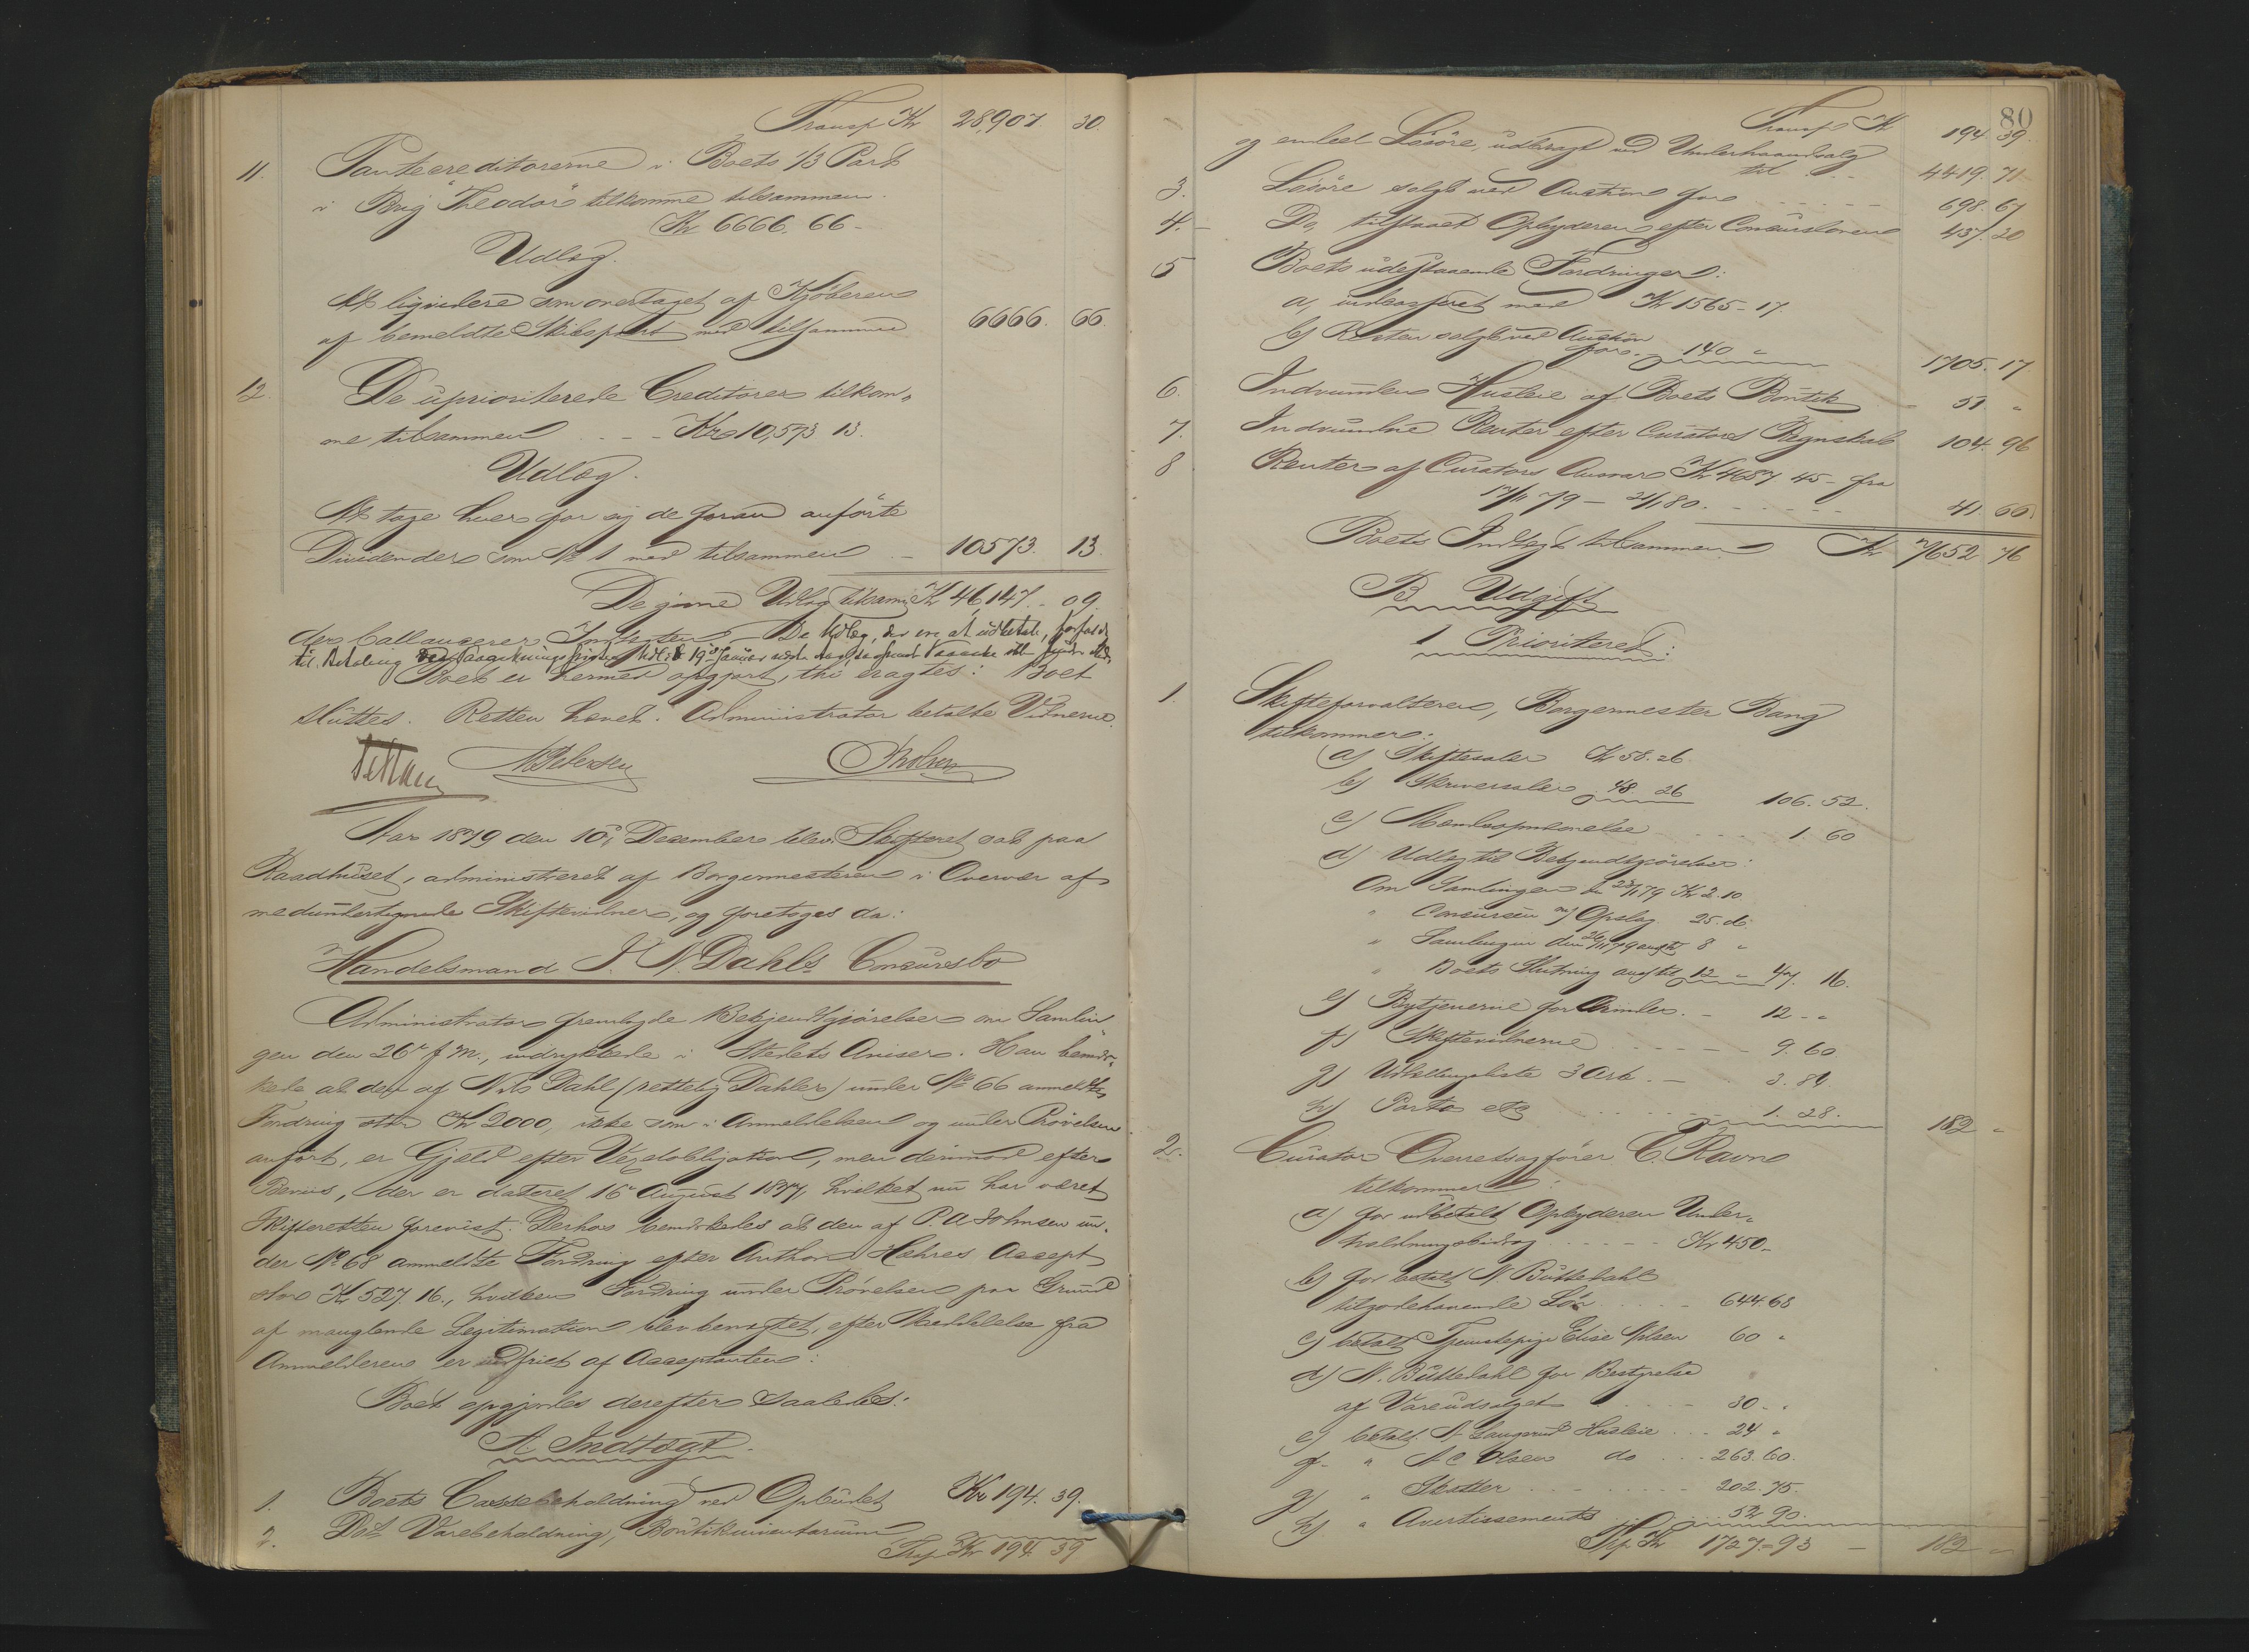 Transp Kr 28,907. 30.
11. Pantecreditorerne i Boets 1/3 Part
i Brig "Theodor" tilkomme tilsammen
Kr 6666. 66 -
Udlæg.
At liqvidere som overtaget af Kjøberen
af bemeldte Skibspart med tilsammen 6666. 66
12. De uprioriterede Creditorer tilkom-
me tilsammen - - - Kr 10,573 13.
Udlæg.
At tage hver for sig de foran anførte
Dividender som No 1 med tilsammen - 10573. 13
De gjorte Udlæg tilsam: Kr 46,147. 09
der ballancerer Indtægten. De Udlæg, der ere at udbetale, forfalde
til Betaling Paaankningsfristens Udløb 19de Januar
Boet er hermed opgjort, thi eragtes: Boet
sluttes. Retten hævet. Administrator betalte Vidnerne.
N Petersen
Aar 1879 den 10de December blev Skifteret sat paa
Raadhuset, administreret af Borgermesteren i Overvær af
medundertegnede Skiftevidner, og foretoges da:
Handelsmand J. N. Dahls Concursbo
Administrator fremlagde Bekjendtgjørelse om Samlin-
gen den 26de f. M., indrykkede i Stedets Aviser. Han bemær-
kede at den af Nils Dahl (rettelig Dahler) under No 66 anmeldte
Fordring stor Kr 2000, ikke som i Anmeldelsen og under Prøvelsen
anført, er Gjæld efter Vexelobligation, men derimod efter
Bevis, der er dateret 16de August 1877, hvilket nu har været
Skifteretten forevist. Derhos bemærkedes at den af P. A Johnsen un-
der No 68 anmeldte Fordring efter Anthon Hæhres Accept
stor Kr 527. 16., hvilken Fordring under Prøvelsen paa Grund
af manglende Legitimation blev benægtet, efter Meddelelse fra
Anmelderen er indfriet af Acceptanten:
Boet opgjordes derefter saaledes:
A. Indtægt.
1. Boets Cassebeholdning ved Opbudet Kr 194. 39.
2. Dets Varebeholdning, Boutikinventarium
Trsp Kr 194. 39
80
Transp Kr 194 39.
og endeel Løsøre, udbragt ved Underhaandsalg
til - - - 4419. 71
3. Løsøre solgt ved Auction for - - - - - 698. 67
4. - Do, tilstaaet Opbyderen efter Concursloven 437. 20
5 Boets udestaaende Fordringer:
a, indcasseret med Kr 1565 - 17.
b) Resten solgt ved Auction
for - 140 " 1705. 17
6. Indvunden Husleie af Boets Boutik - 51. "
7. Indvundne Renter efter Curators Regnskab 104. 96
8 Renter af Curators Ansvar Kr 4687 45 - fra
79 - 80. - - - - - 41. 66.
Boets Indtægt tilsammen Kr 7652 76
B Udgift
1 Prioriteret:
1. Skifteforvalteren, Borgermester Bang
tilkommer:
a) Skiftesaler Kr 58. 26.
b) Skriversaler 48. 26 106. 52.
c) - - - - 1. 60
d) Udlæg til Bekjendtgjørelser:
Om Samlingen 79 Kr 2. 10
" Concursen m/ Opslag 25. 06
" Samlingen den 26/11 79 8 "
" Boets Slutning 12 " 47. 16.
e) Bytjenerne for - 12 - "
f) Skiftevidnerne - - - - - 9. 60
g) Udlodningsliste 3 Ark. - 3. 84
h) Porto etc - - - - - 1. 28. 182 "
2. Curator Overretssagfører C. Ravn
tilkommer:
a) for udbetalt Opbyderen Under-
holdningsbidrag - - - - - Kr 450. -
b) for betalt N. Buttedahl
tilgodehavende Løn - - - - - 644. 68
c) betalt Tjenestepige Elise Nilsen 60 "
d) N. Buttedahl for Bestyrelse
af Vareudsalget - - - - 30 - "
e) betalt N Langerud Husleie - - 24 "
f - " A C Olsen do - - - 263. 60.
g) " Skatter - - - - - - - 202. 75.
h) " Avertissements - - - 52 90.
Trsp Kr 1727. - 93 - 182 "